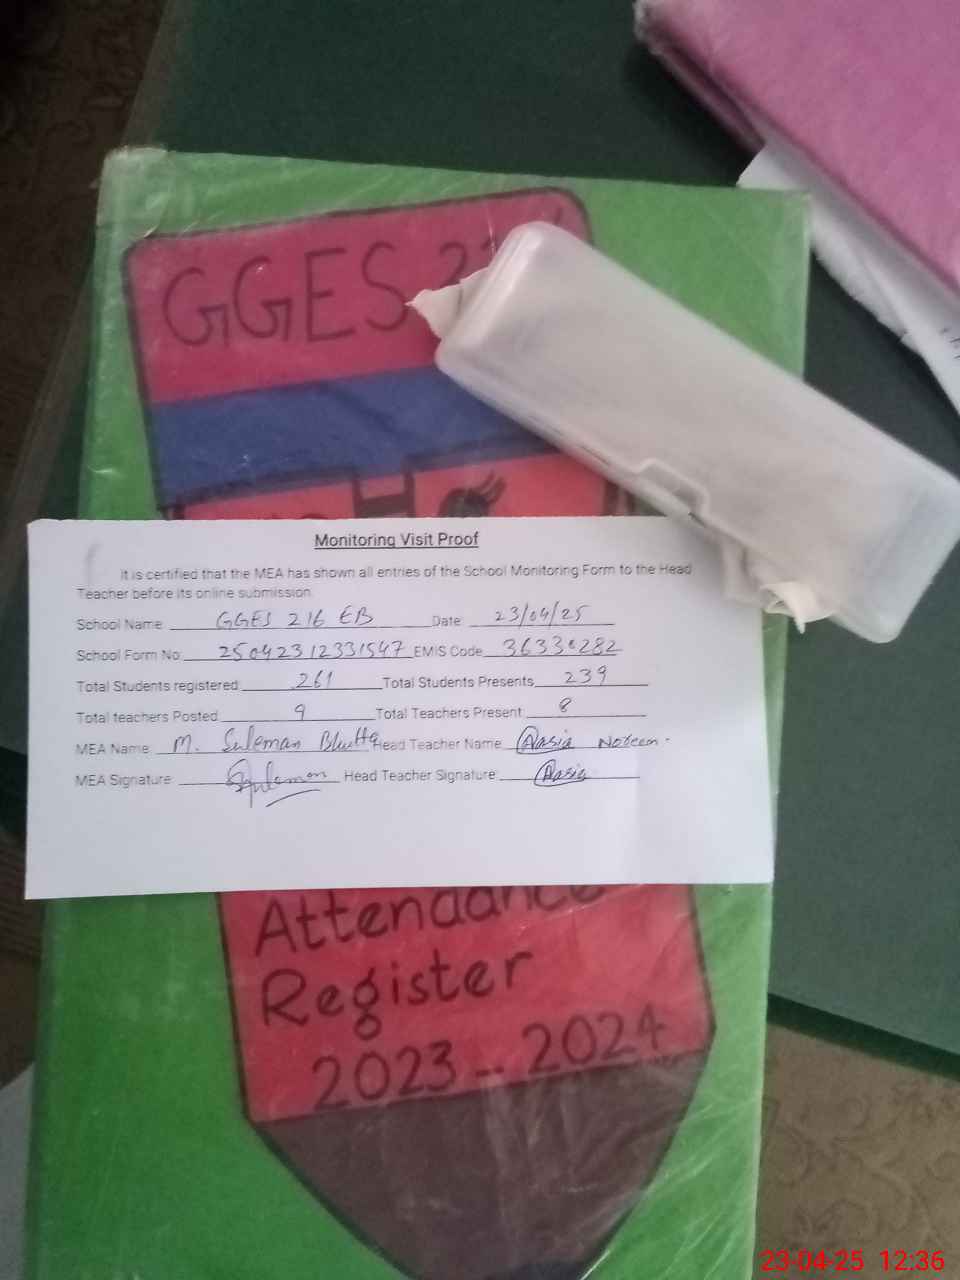 GGES
Monitoring Visit Proof
It is certified that the MEA has shown all entries of the School Monitoring Form to the Head
Teacher before its online submission.
School Name GGES 216 EB Date 23/04/25
School Form No: 25042312331547 EMIS Code 36330282
Total Students registered: 261 Total Students Presents 239
Total teachers Posted: 9 Total Teachers Present: 8
MEA Name M. Suleman Bhutta Head Teacher Name Aasia Noreen.
MEA Signature Suleman Head Teacher Signature: Aasia
Attendance
Register
2023-2024
23-04-25 12:36